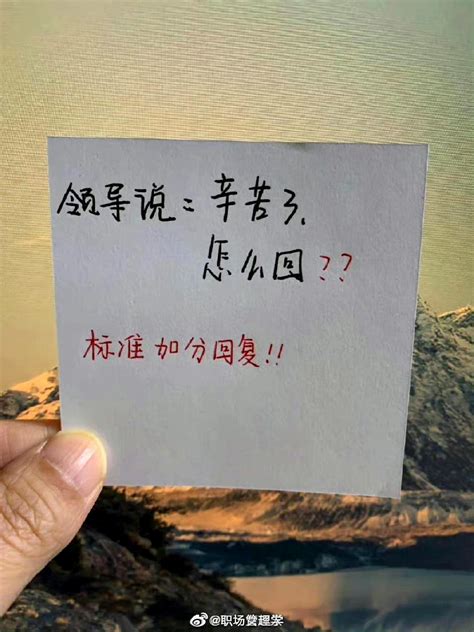 领导说：辛苦了，
怎么回??
标准加分回复!!
@职场管理棠